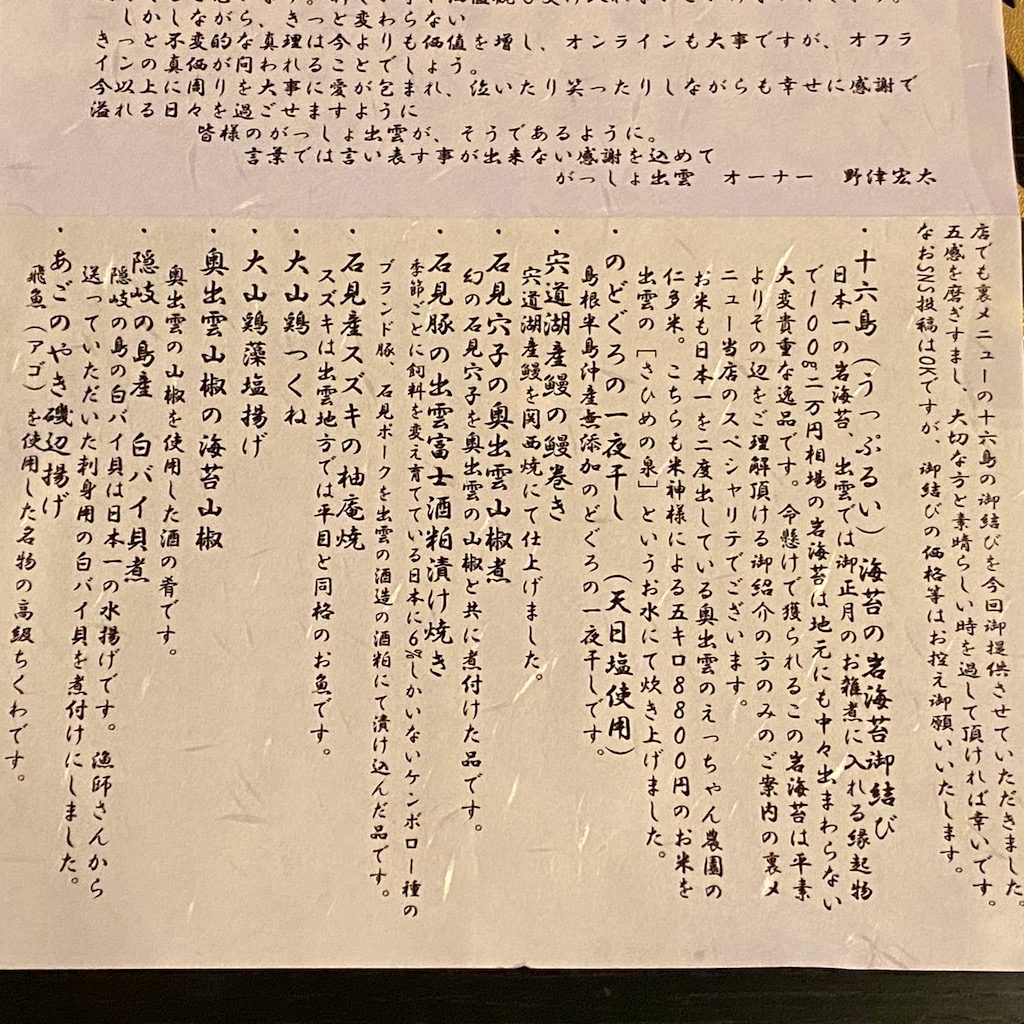 しかしながら、きっと変わらない
きっと不変的な真理は今よりも価値を増し、オンラインも大事ですが、オフラ
インの真価が問われることでしょう。
今以上に周りを大事に愛が包まれ、泣いたり笑ったりしながらも幸せに感謝で
溢れる日々を過ごせますように
皆様のがっしょ出雲が、そうであるように。
言葉では言い表す事が出来ない感謝を込めて
がっしょ出雲 オーナー 野津宏太
店でも裏メニューの十六島の御結びを今回御提供させていただきました。
五感を磨ぎすまし、大切な方と素晴らしい時を過して頂ければ幸いです。
なおSNS投稿はOKですが、御結びの価格等はお控え御願いいたします。
・十六島(うっぷるい)海苔の岩海苔御結び
日本一の岩海苔、出雲では御正月のお雑煮に入れる縁起物
で100g二万円相場の岩海苔は地元にも中々出まわらない
大変貴重な逸品です。命懸けで獲られるこの岩海苔は平素
よりその辺をご理解頂ける御紹介の方のみのご案内の裏メ
ニュー当店のスペシャリテでございます。
お米も日本一を二度出している奥出雲のえっちゃん農園の
仁多米。こちらも米神様による五キロ8800円のお米を
出雲の[さひめの泉]というお水にて炊き上げました。
・のどぐろの一夜干し (天日塩使用)
島根半島沖産無添加のどぐろの一夜干しです。
・宍道湖産鰻の鰻巻き
宍道湖産鰻を関西焼にて仕上げました。
・石見穴子の奥出雲山椒煮
幻の石見穴子を奥出雲の山椒と共に煮付けた品です。
・石見豚の出雲富士酒粕漬け焼き
季節ごとに飼料を変え育てている日本に6%しかいないケンボロー種の
ブランド豚、石見ポークを出雲の酒造の酒粕にて漬け込んだ品です。
・石見産スズキの柚庵焼
スズキは出雲地方では平目と同格のお魚です。
・大山鶏つくね
・大山鶏藻塩揚げ
・奥出雲山椒の海苔山椒
奥出雲の山椒を使用した酒の肴です。
・隠岐の島産 白バイ貝煮
隠岐の島の白バイ貝は日本一の水揚げです。漁師さんから
送っていただいた刺身用の白バイ貝を煮付けにしました。
・あごのやき磯辺揚げ
飛魚(アゴ)を使用した名物の高級ちくわです。